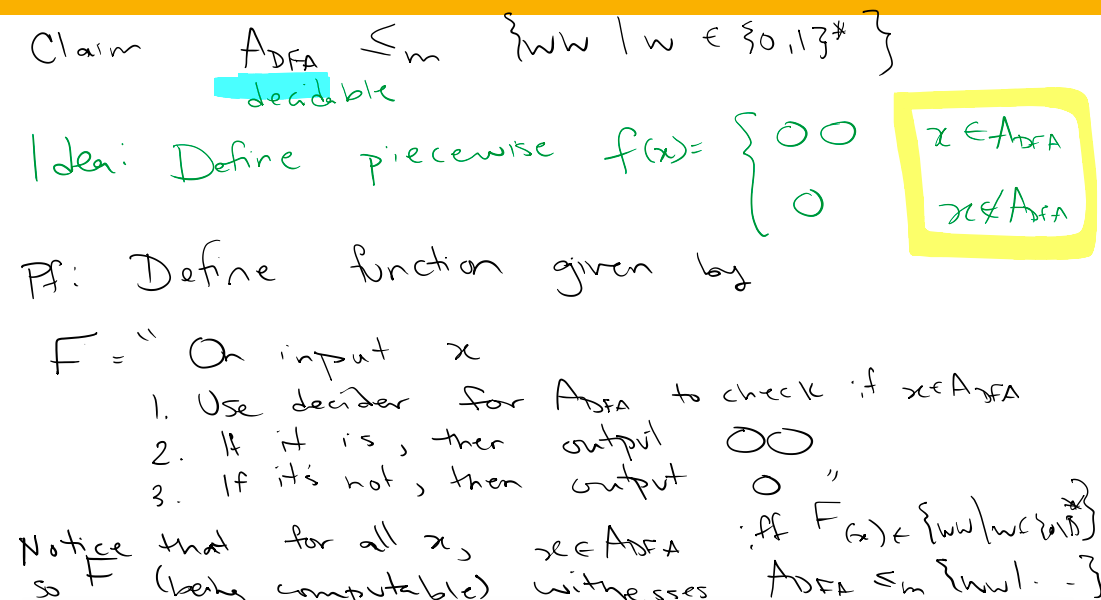 Claim A_DFA ≤_m {ww | w ∈ {0,1}* }
decidable
Idea: Define piecewise f(x)= { 00 x ∈ A_DFA
0 x ∉ A_DFA
Pf: Define function given by
F = " On input x
1. Use decider for A_DFA to check if x ∈ A_DFA
2. If it is, then output 00
3. If it's not, then output 0 "
Notice that for all x, x ∈ A_DFA iff F(x) ∈ {ww | w ∈ {0,1}*}
so F (being computable) witnesses A_DFA ≤_m {ww | . . }